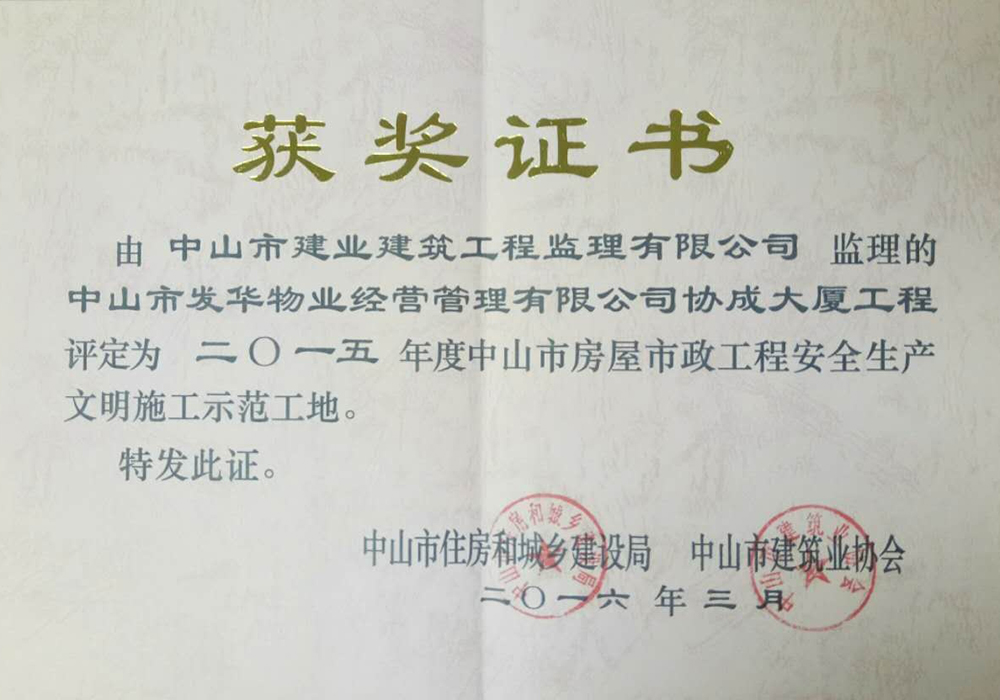 获奖证书
由 中山市建业建筑工程监理有限公司 监理的
中山市发华物业经营管理有限公司协成大厦工程
评定为 二〇一五 年度中山市房屋市政工程安全生产
文明施工示范工地。
特发此证。
中山市住房和城乡建设局 中山市建筑业协会
二〇一六年三月